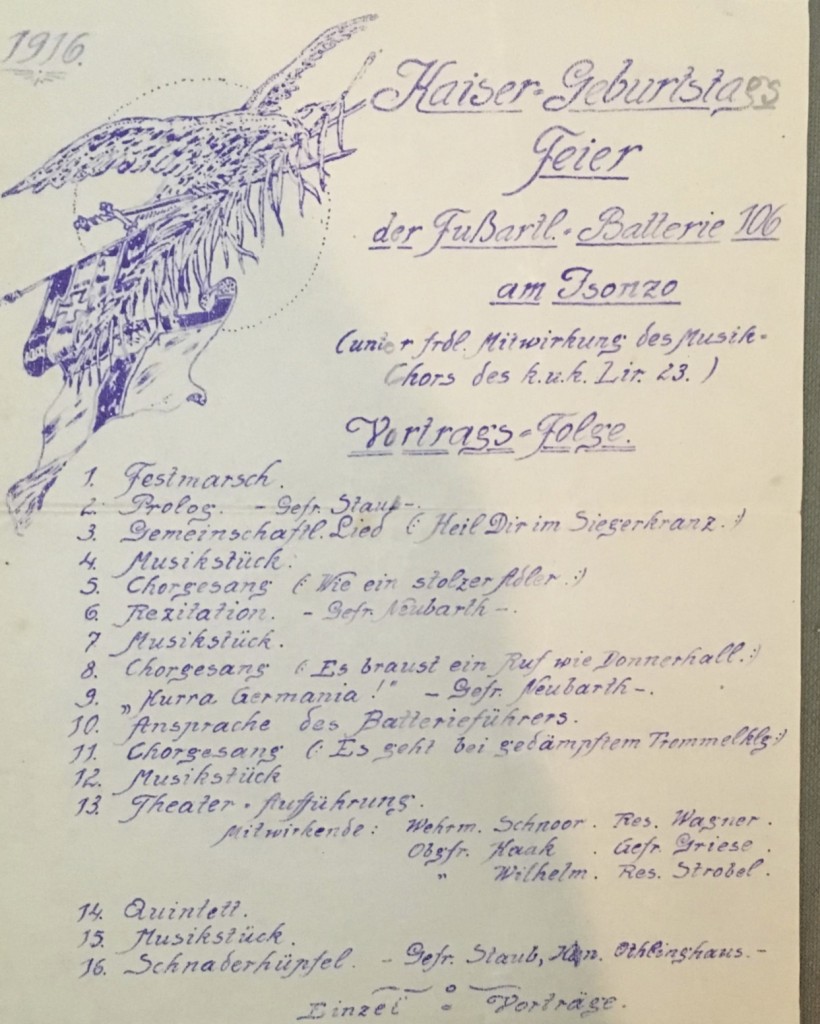 1916.
Kaiser-Geburtstags
Feier
der Fußartl.-Batterie 106
am Isonzo
(unter frdl. Mitwirkung des Musik-
Chors des k.u.k. Lir. 23.)
Vortrags-Folge.
1. Festmarsch.
2. Prolog. - Gefr. Staub -.
3. Gemeinschaftl. Lied (: Heil Dir im Siegerkranz. :)
4. Musikstück.
5. Chorgesang (: Wie ein stolzer Adler. :)
6. Rezitation. - Gefr. Neubarth -.
7. Musikstück.
8. Chorgesang (: Es braust ein Ruf wie Donnerhall. :)
9. „Hurra Germania!" - Gefr. Neubarth -.
10. Ansprache des Batterieführers.
11. Chorgesang (: Es geht bei gedämpftem Trommelklg :)
12. Musikstück
13. Theater-Aufführung.
Mitwirkende: Wehrm. Schnoor. Res. Wagner.
Obgfr. Haak. Gefr. Griese.
" Wilhelm. Res. Strobel.
14. Quintett.
15. Musikstück.
16. Schnaderhüpfel. - Gefr. Staub, Othlinghaus. -
Einzel Vorträge.